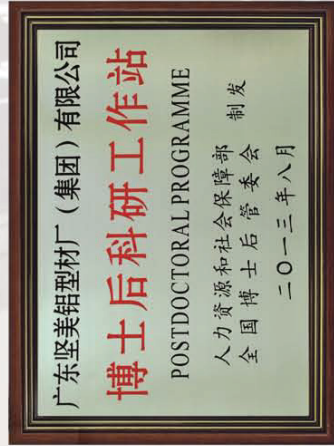 广东坚美铝型材厂(集团)有限公司
博士后科研工作站
POSTDOCTORAL PROGRAMME
人力资源和社会保障部
全国博士后管委会 制发
二〇一三年八月